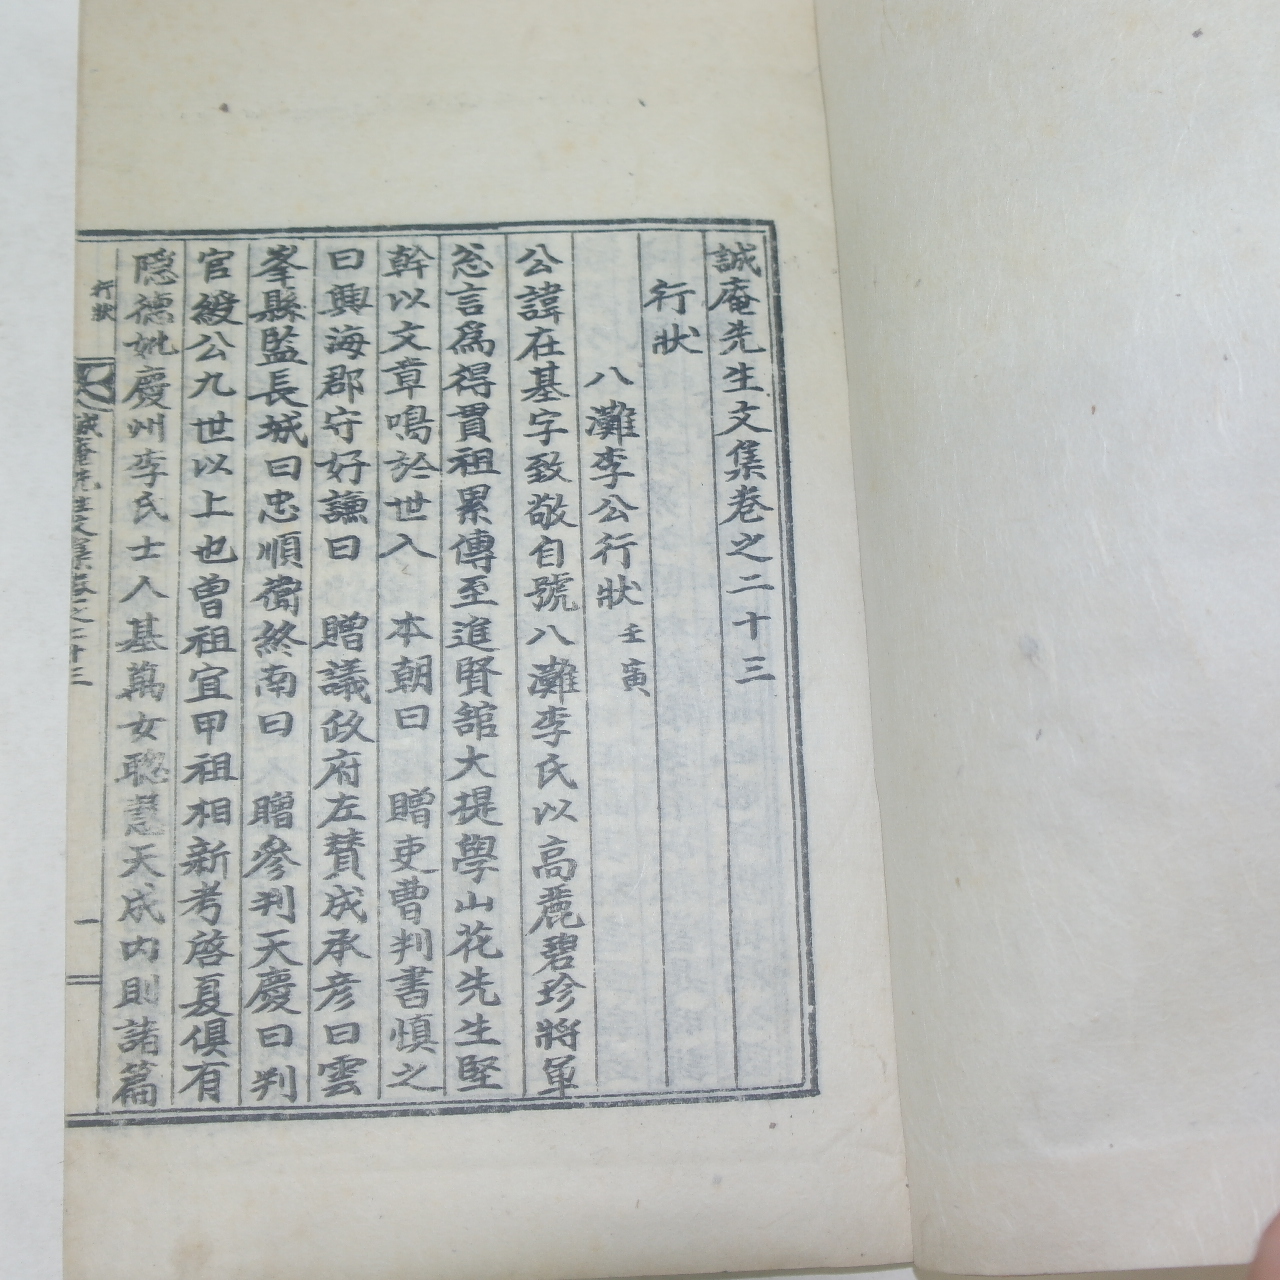 誠庵先生文集卷之二十三
行狀
八灘李公行狀 壬寅
公諱在基字致敬自號八灘李氏以高麗碧珍將軍
忩言爲得貫祖累傳至進賢舘大提學山花先生堅
幹以文章鳴於世入 本朝曰 贈吏曹判書愼之
曰興海郡守好謙曰 贈議政府左賛成承彦曰雲
峯縣監長城曰忠順衛終南曰 贈參判天慶曰判
官綬公九世以上也曾祖宜甲祖相新考啓夏俱有
隱德妣慶州李氏士人基萬女聦慧天成内則諸篇
行狀
誠庵先生文集卷之二十三
一